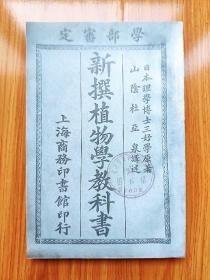 學部審定
日本理學博士三好學原著
山陰杜亞泉譯述
新撰植物學教科書
上海商務印書館印行